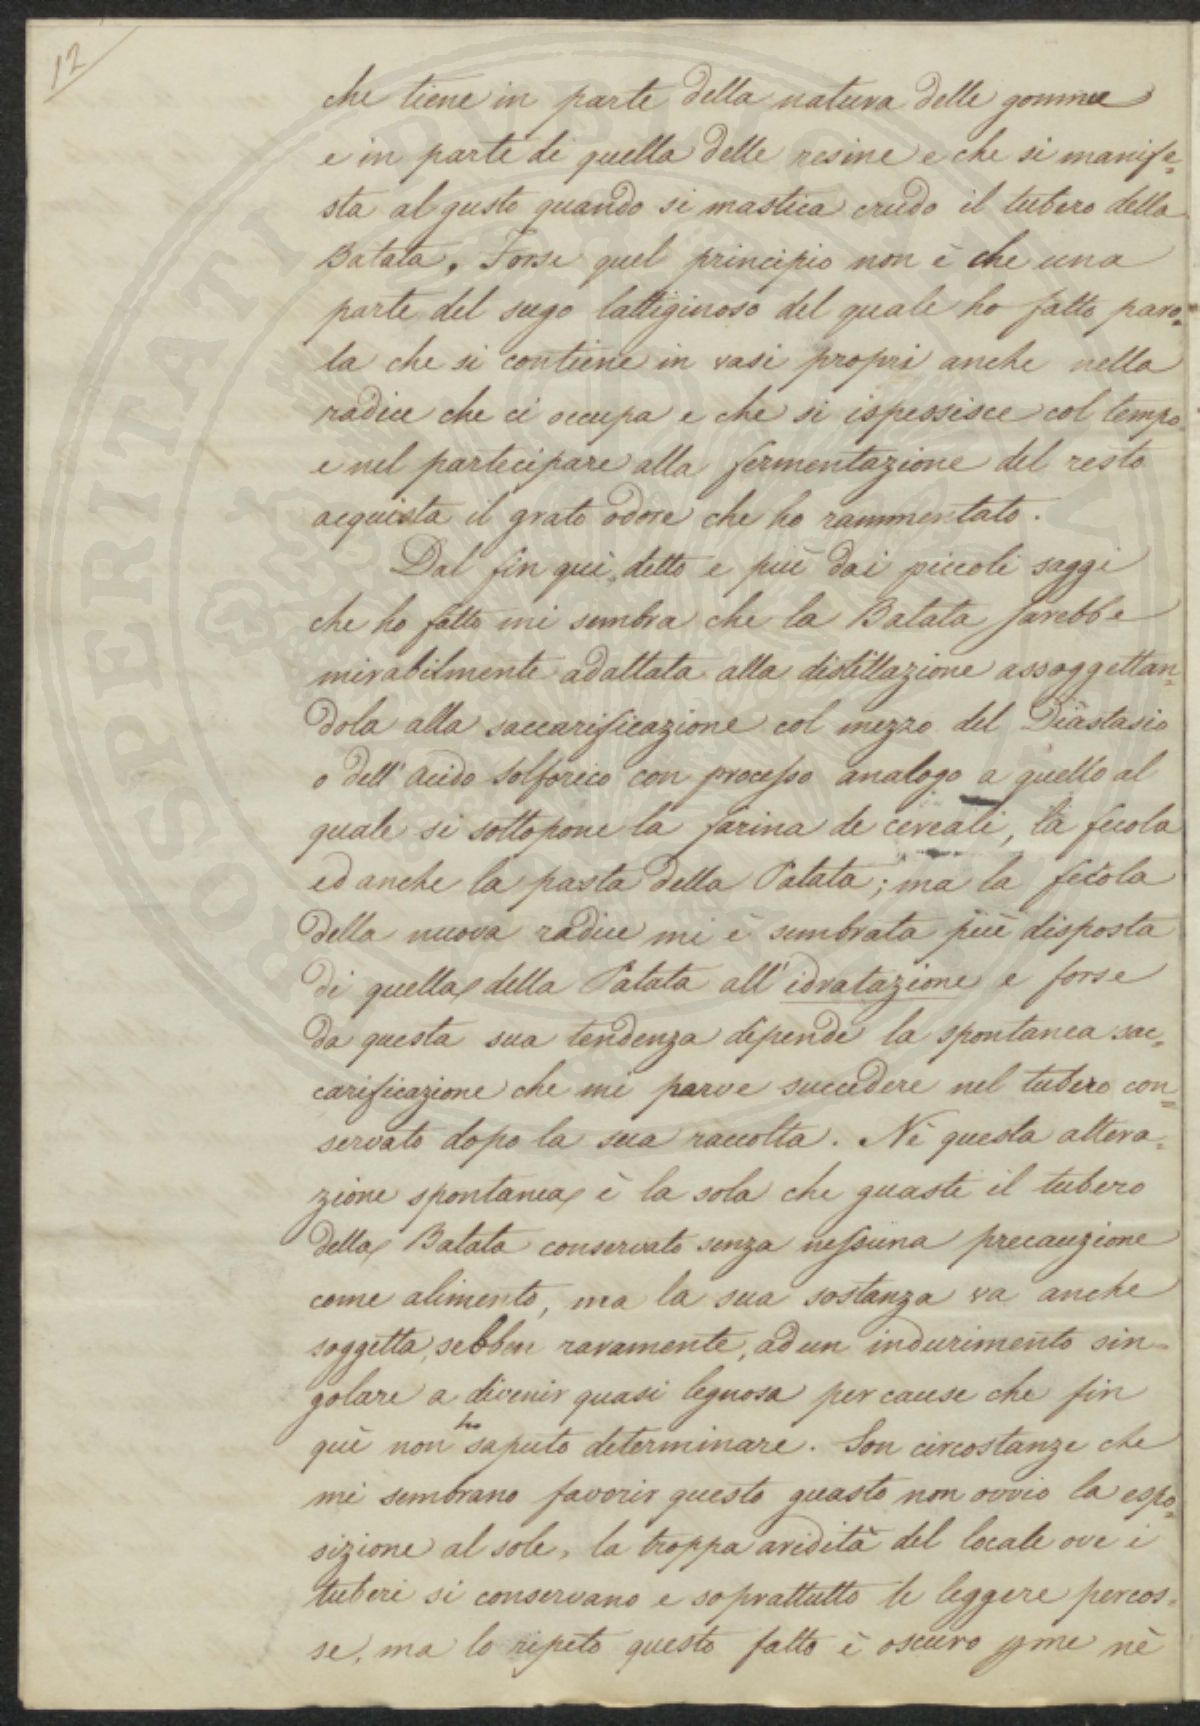 12
che tiene in parte della natura delle gomme
e in parte di quella delle resine e che si manife=
sta al gusto quando si mastica crudo il tubero della
Batata. Forse quel principio non è che una
parte del sugo lattiginoso del quale ho fatto paro=
la che si contiene in vasi propri anche nella
radice che ci occupa e che si ispessisce col tempo
e nel partecipare alla fermentazione del resto
acquista il grato odore che ho rammentato.
Dal fin quì detto e più dai piccoli saggi
che ho fatto mi sembra che la Batata sarebbe
mirabilmente adattata alla distillazione assoggettan=
dola alla saccarificazione col mezzo del Diastasio
o dell' Acido solforico con processo analogo a quello al
quale si sottopone la farina de cereali, la fecola
ed anche la pasta della Patata; ma la fecola
della nuova radice mi è sembrata più disposta
di quella della Patata all' idratazione e forse
da questa sua tendenza dipende la spontanea sac=
carificazione che mi parve succedere nel tubero con=
servato dopo la sua raccolta. Nè questa altera=
zione spontanea è la sola che guasti il tubero
della Batata conservato senza nessuna precauzione
come alimento, ma la sua sostanza va anche
soggetta, sebben raramente, ad un indurimento sin=
golare a divenir quasi legnosa per cause che fin
quì non ho saputo determinare. Son circostanze che
mi sembrano favorir questo guasto non ovvio la espo=
sizione al sole, la troppa aridità del locale ove i
tuberi si conservano e soprattutto le leggere percos=
se, ma lo ripeto questo fatto è oscuro p me nè
PROSPERITATI PUBLICAE